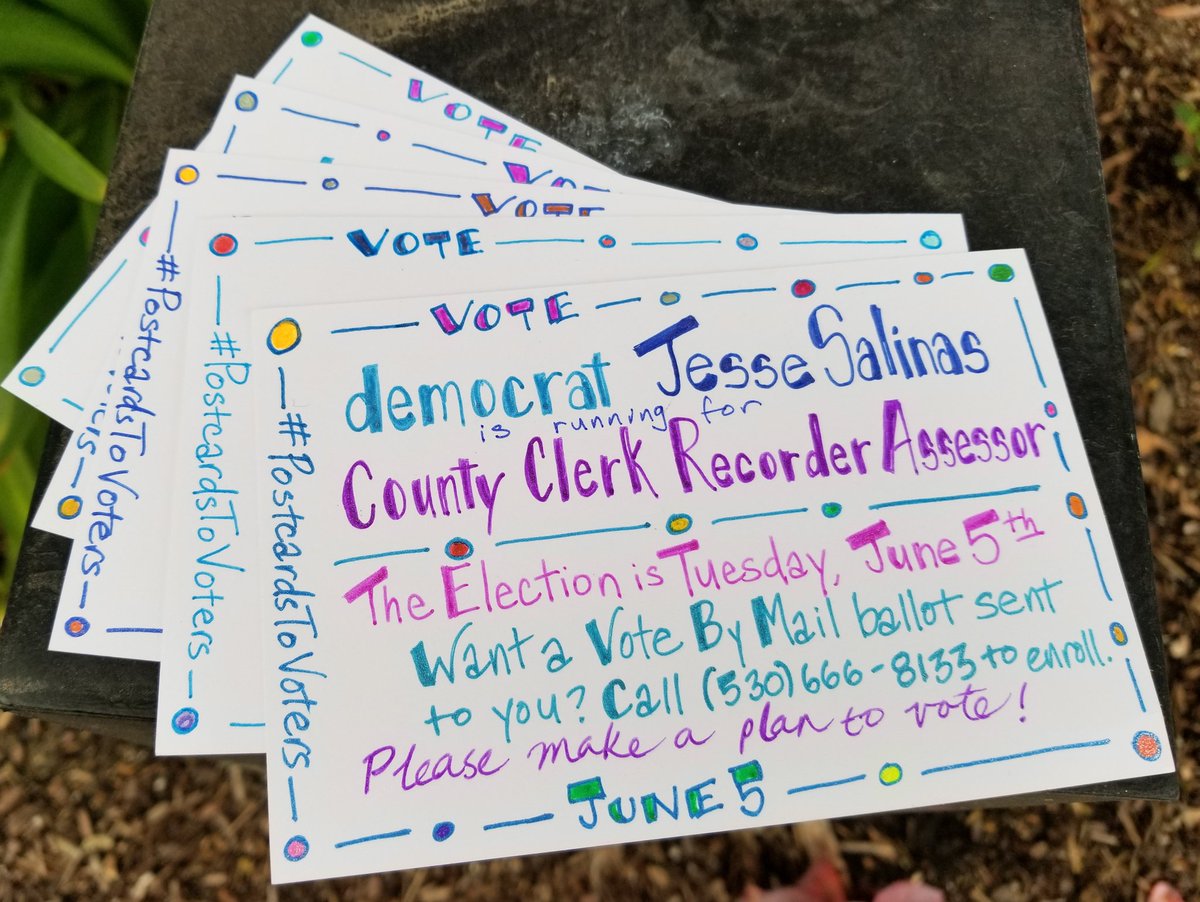 VOTE
VOTE
VOTE
VOTE
#PostcardsToVoters
#PostcardsToVoters
VOTE
democrat Jesse Salinas
is running for
County Clerk Recorder Assessor
The Election is Tuesday, June 5th
Want a Vote By Mail ballot sent
to you? Call (530) 666-8133 to enroll.
Please make a plan to vote!
JUNE 5
#PostcardsToVoters